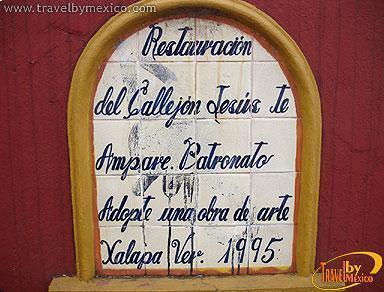 www.travelbymexico.com
Restauración
del Callejón Jesús te
Ampare. Patronato
Adopte una obra de arte
Xalapa Ver. 1995.
TRAVEL by MÉXICO